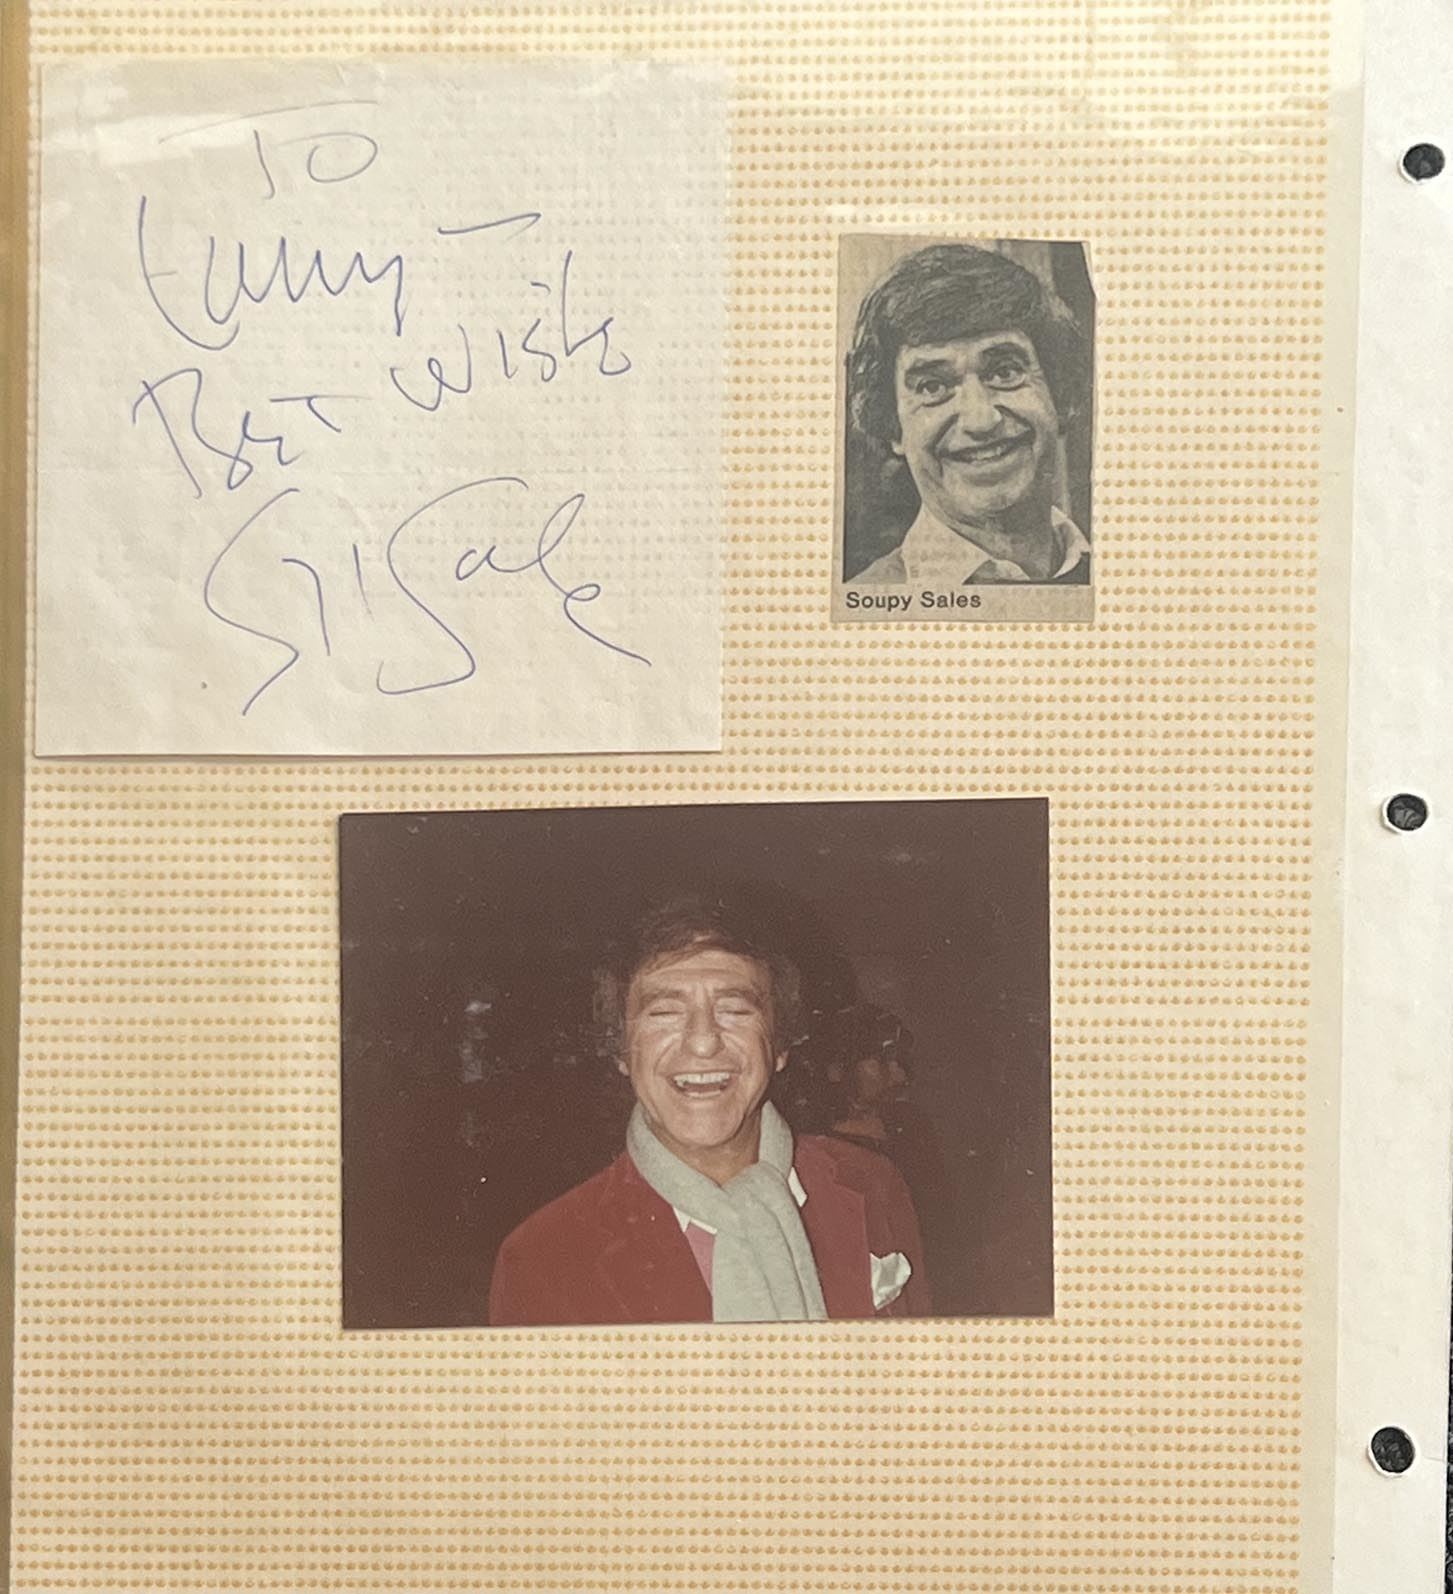 TO
Lanny —
Best Wishes
Soupy Sales
Soupy Sales